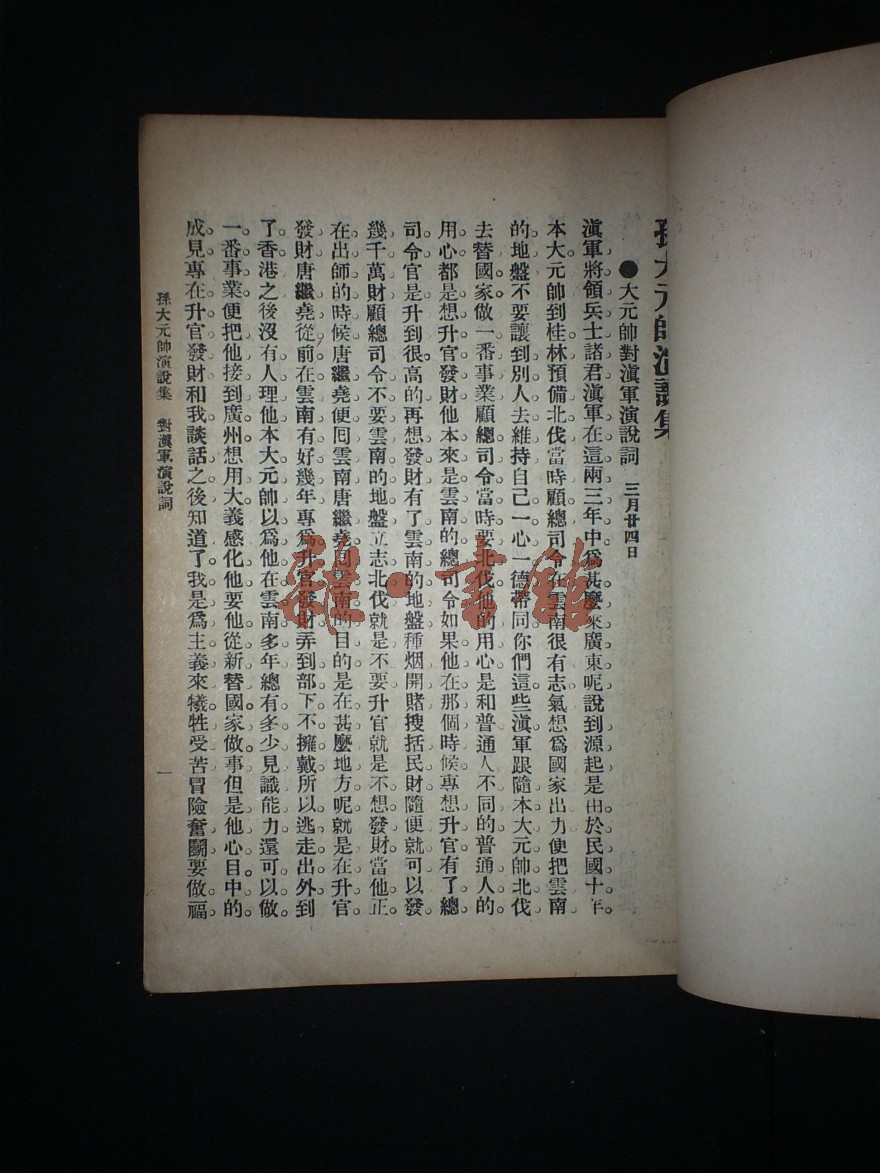 孫大元帥演說集
●大元帥對滇軍演說詞 三月廿四日
滇軍將領兵士諸君滇軍在這兩三年中爲甚麼來廣東呢說到源起是由於民國十年。
本大元帥到桂林預備北伐當時顧總司令在雲南很有志氣想爲國家出力便把雲南
的地盤不要讓到別人去維持自己一心一德帶同你們這些滇軍跟隨本大元帥北伐
去替國家做一番事業顧總司令當時要北伐他的用心是和普通人不同的普通人的
用心都是想升官發財他本來是雲南的總司令如果他在那個時候專想升官有了總
司令官是升到很高的再想發財有了雲南的地盤種烟開賭搜括民財隨便就可以發
幾千萬財顧總司令不要雲南的地盤立志北伐就是不要升官就是不想發財當他正
在出師的時候唐繼堯便囘雲南唐繼堯囘雲南的目的是在甚麼地方呢就是在升官
發財唐繼堯從前在雲南有好幾年專爲升官發財弄到部下不擁戴所以逃走出外到
了香港之後沒有人理他本大元帥以爲他在雲南多年總有多少見識能力還可以做
一番事業便把他接到廣州想用大義感化他要他從新替國家做事但是他心目中的
成見專在升官發財和我談話之後知道了我是爲主義來犧牲受苦冒險奮鬭要做福。
孫大元帥演說集 對滇軍演說詞 一
龍·書館